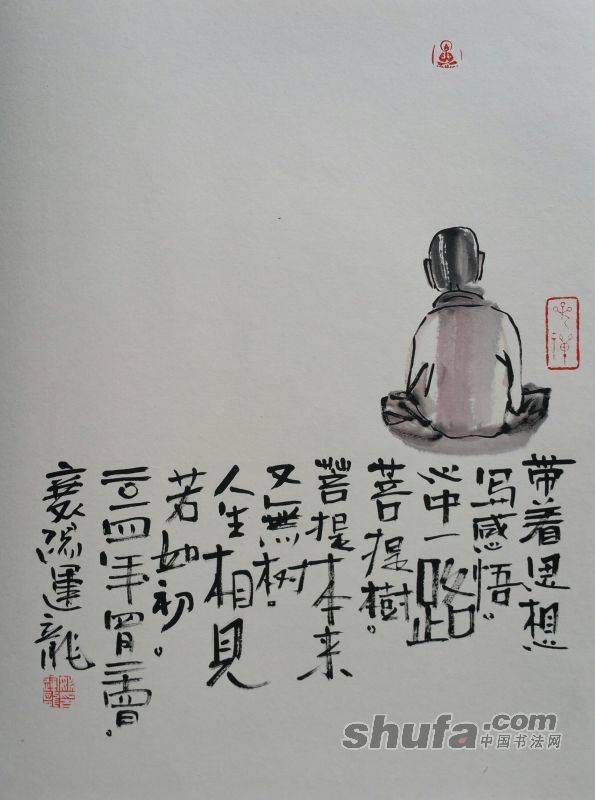 带着思想
写感悟。
心中一路
菩提樹。
菩提本来
又無树。
人生相見
若如初。
二〇一四年
運龍
shufa.com
中国书法网